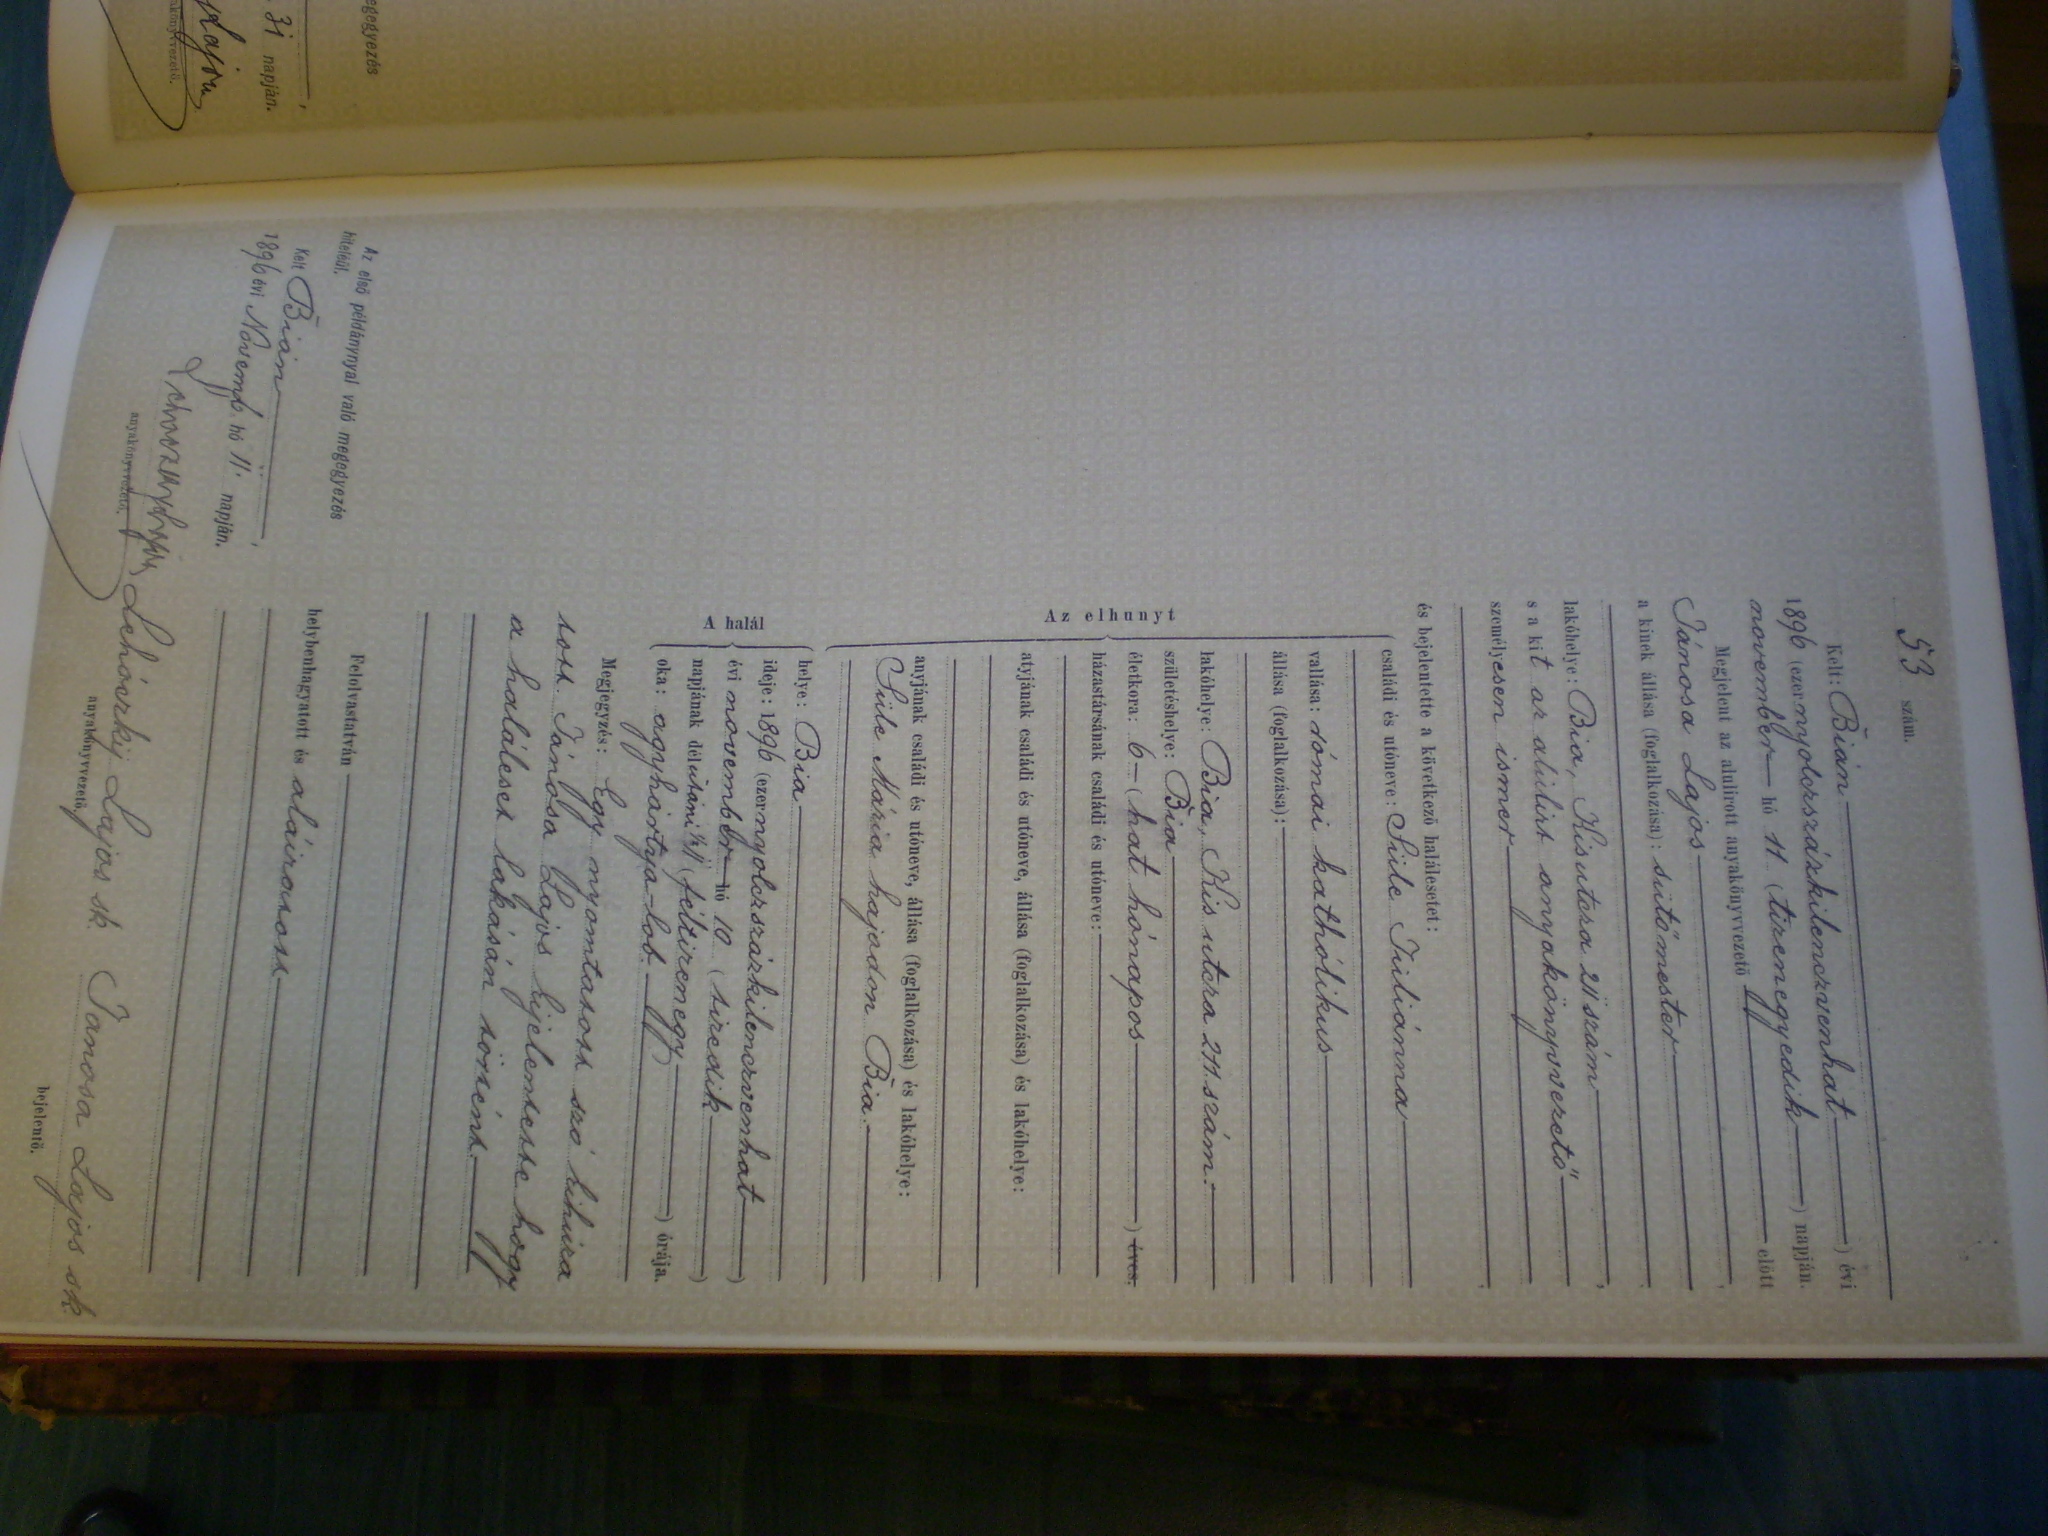 egegyezés
31 napján.
Lajos
53 szám.
Kelt: Bián ) évi
1896 (ezernyolcszázkilenczvenhat
november hó 11 (tizenegyedik ) napján.
Megjelent az alulirott anyakönyvvezető előtt
Jánosa Lajos ,
a kinek állása (foglalkozása): sütőmester
,
lakóhelye: Bia, Kisutcza 211 szám
s a kit az alúlirt anyakönyvvezető
személyesen ismer ,
és bejelentette a következő halálesetet:
Az elhunyt
családi és utóneve: Süle Juliánna
vallása: római kathólikus
állása (foglalkozása):
lakóhelye: Bia, Kis utcza 211. szám.
születéshelye: Bia
életkora: 6 (hat hónapos ) éves,
házastársának családi és utóneve:
atyjának családi és utóneve, állása (foglalkozása) és lakóhelye:
anyjának családi és utóneve, állása (foglalkozása) és lakóhelye:
Süle Mária hajadon Bia.
A halál
helye: Bia
ideje: 1896 (ezernyolczszázkilenczvenhat )
évi november hó 10 (tizedik )
napjának délutáni ½11 (féltizenegy ) órája.
oka: agyhártya-lob.
Megjegyzés: Egy nyomtatott szó kihúzatott. Jánosa Lajos kijelentette hogy
a haláleset lakásán történt.
Felolvastatván
helybenhagyatott és aláíratott
Az első példánynyal való megegyezés
hiteléül.
Kelt Bián ,
1896 évi Novemb. hó 11. napján.
anyakönyvvezető.
Lehóczkij Lajos sk.
anyakönyvvezető.
Jánosa Lajos sk.
bejelentő.